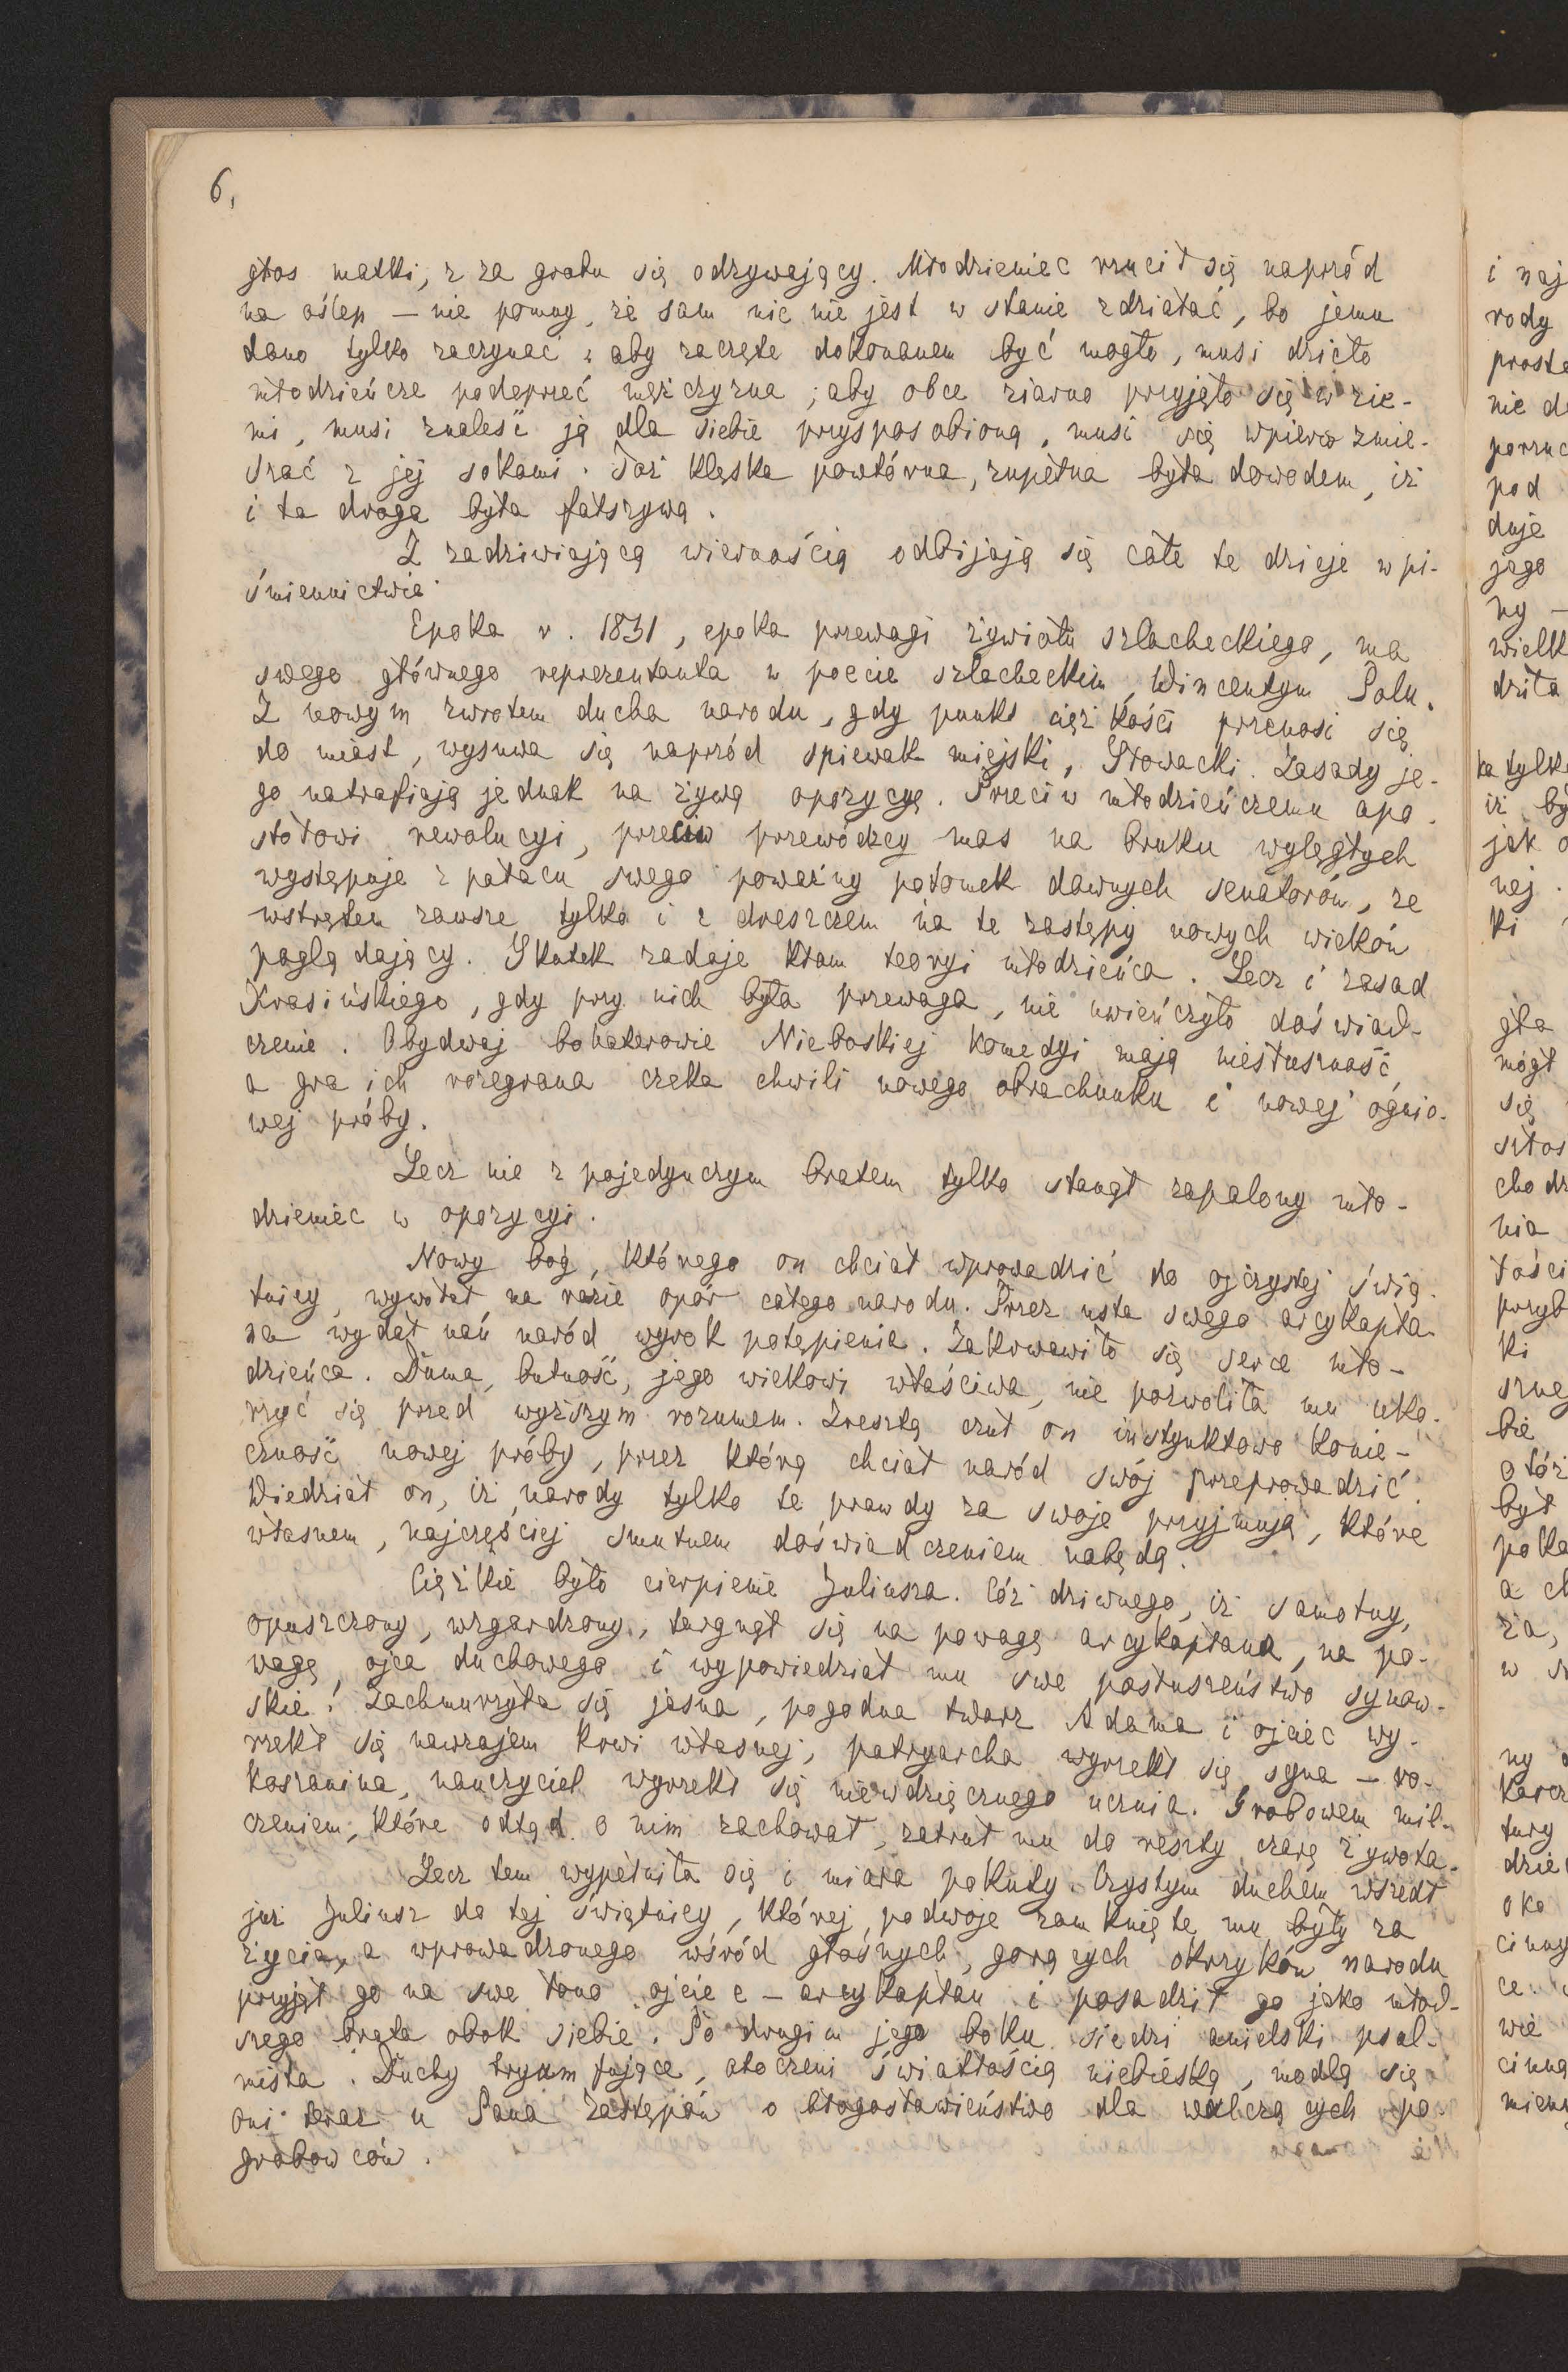 6,
głos matki, z za grobu się odzywający. Młodzieniec rzucił się naprzód
na oślep — nie pomny, że sam nic nie jest w stanie zdziałać, bo jemu
dano tylko zaczynać; aby zaczęte dokonanem być mogło, musi dzieło
młodzieńcze podeprzeć mężczyzna; aby obce ziarno przyjęło się w zie-
mi, musi znaleść ją dla siebie przysposobioną, musi się wpierw zmie-
szać z jej sokami. Toż klęska powtórna, zupełna była dowodem, iż
i ta droga była fałszywą.
Z zadziwiającą wiernością odbijają się całe te dzieje w pi-
śmiennictwie.
Epoka r. 1831, epoka przewagi żywiołu szlacheckiego, ma
swego głównego reprezentanta w poecie szlacheckim, Wincentym Polu.
Z nowym zwrotem ducha narodu, gdy punkt ciężkości przenosi się
do miast, wysuwa się naprzód spiewak miejski, Słowacki. Zasady je-
go natrafiają jednak na żywą opozycyę. Przeciw młodzieńczemu apo-
stołowi rewolucyi, przeciw przewódzcy mas na bruku wylęgłych
występuje z pałacu swego poważny potomek dawnych senatorów, ze
wstrętem zawsze tylko i z dreszczem na te zastępy nowych wieków
poglądający. Skutek zadaje kłam teoryi młodzieńca. Lecz i zasad
Krasińskiego, gdy przy nich była przewaga, nie uwieńczyło doświad-
czenie. Obydwaj bohaterowie Nieboskiej Komedyi mają niesłuszność,
a gra ich rozegrana czeka chwili nowego obrachunku i nowej ognio-
wej próby.
Lecz nie z pojedynczym bratem tylko stanął zapalony mło-
dzieniec w opozycyi.
Nowy bóg, którego on chciał wprowadzić do ojczystej świą-
tnicy, wywołał na razie opór całego narodu. Przez usta swego arcykapła-
na wydał nań naród wyrok potępienia. Zakrwawiło się serce mło-
dzieńca. Duma, butność, jego wiekowi właściwa, nie pozwoliła mu uko-
rzyć się przed wyższym rozumem. Zresztą czuł on instynktowo konie-
czność nowej próby, przez którą chciał naród swój przeprowadzić.
Wiedział on, iż narody tylko te prawdy za swoje przyjmują, które
własnem, najczęściej smutnem doświadczeniem nabędą.
Ciężkie było cierpienie Juliusza. Cóż dziwnego, iż samotny,
opuszczony, wzgardzony, targnął się na powagę arcykapłana, na po-
wagę ojca duchowego i wypowiedział mu swe posłuszeństwo synow-
skie! Zachmurzyła się jasna, pogodna twarz Adama i ojciec wy-
rzekł się nawzajem krwi własnej, patryarcha wyrzekł się syna — ro-
koszanina, nauczyciel wyrzekł się niewdzięcznego ucznia. Grobowem mil-
czeniem, które odtąd o nim zachował, zatruł mu do reszty czarę żywota.
Lecz tem wypełniła się i miara pokuty. Czystym duchem wszedł
już Juliusz do tej świątnicy, której podwoje zamknięte mu były za
życia, a wprowadzonego wśród głośnych, gorących okrzyków narodu
przyjął go na swe łono ojciec — arcykapłan i posadził go jako młod-
szego brata obok siebie. Po drugim jego boku siedzi anielski psal-
mista. Duchy tryumfujące, otoczeni światłością niebieską, modlą się
oni teraz u Pana Zastępów o błogosławieństwo dla walczących po-
grobowców.
i naj
rody
prosto
nie d
porzuc
pod
duje
jego
ny —
wielk
dziła
ka tylko
iż by
jak o
nej.
ki
gła
mógł
się
szłos
chodz
nia
łości
przyb
ki
szne
bie
otóż
był
poko
a ch
za,
w s
ny
karcz
tury
dzie
oko
cinny
ce
wie
cinna
mienn